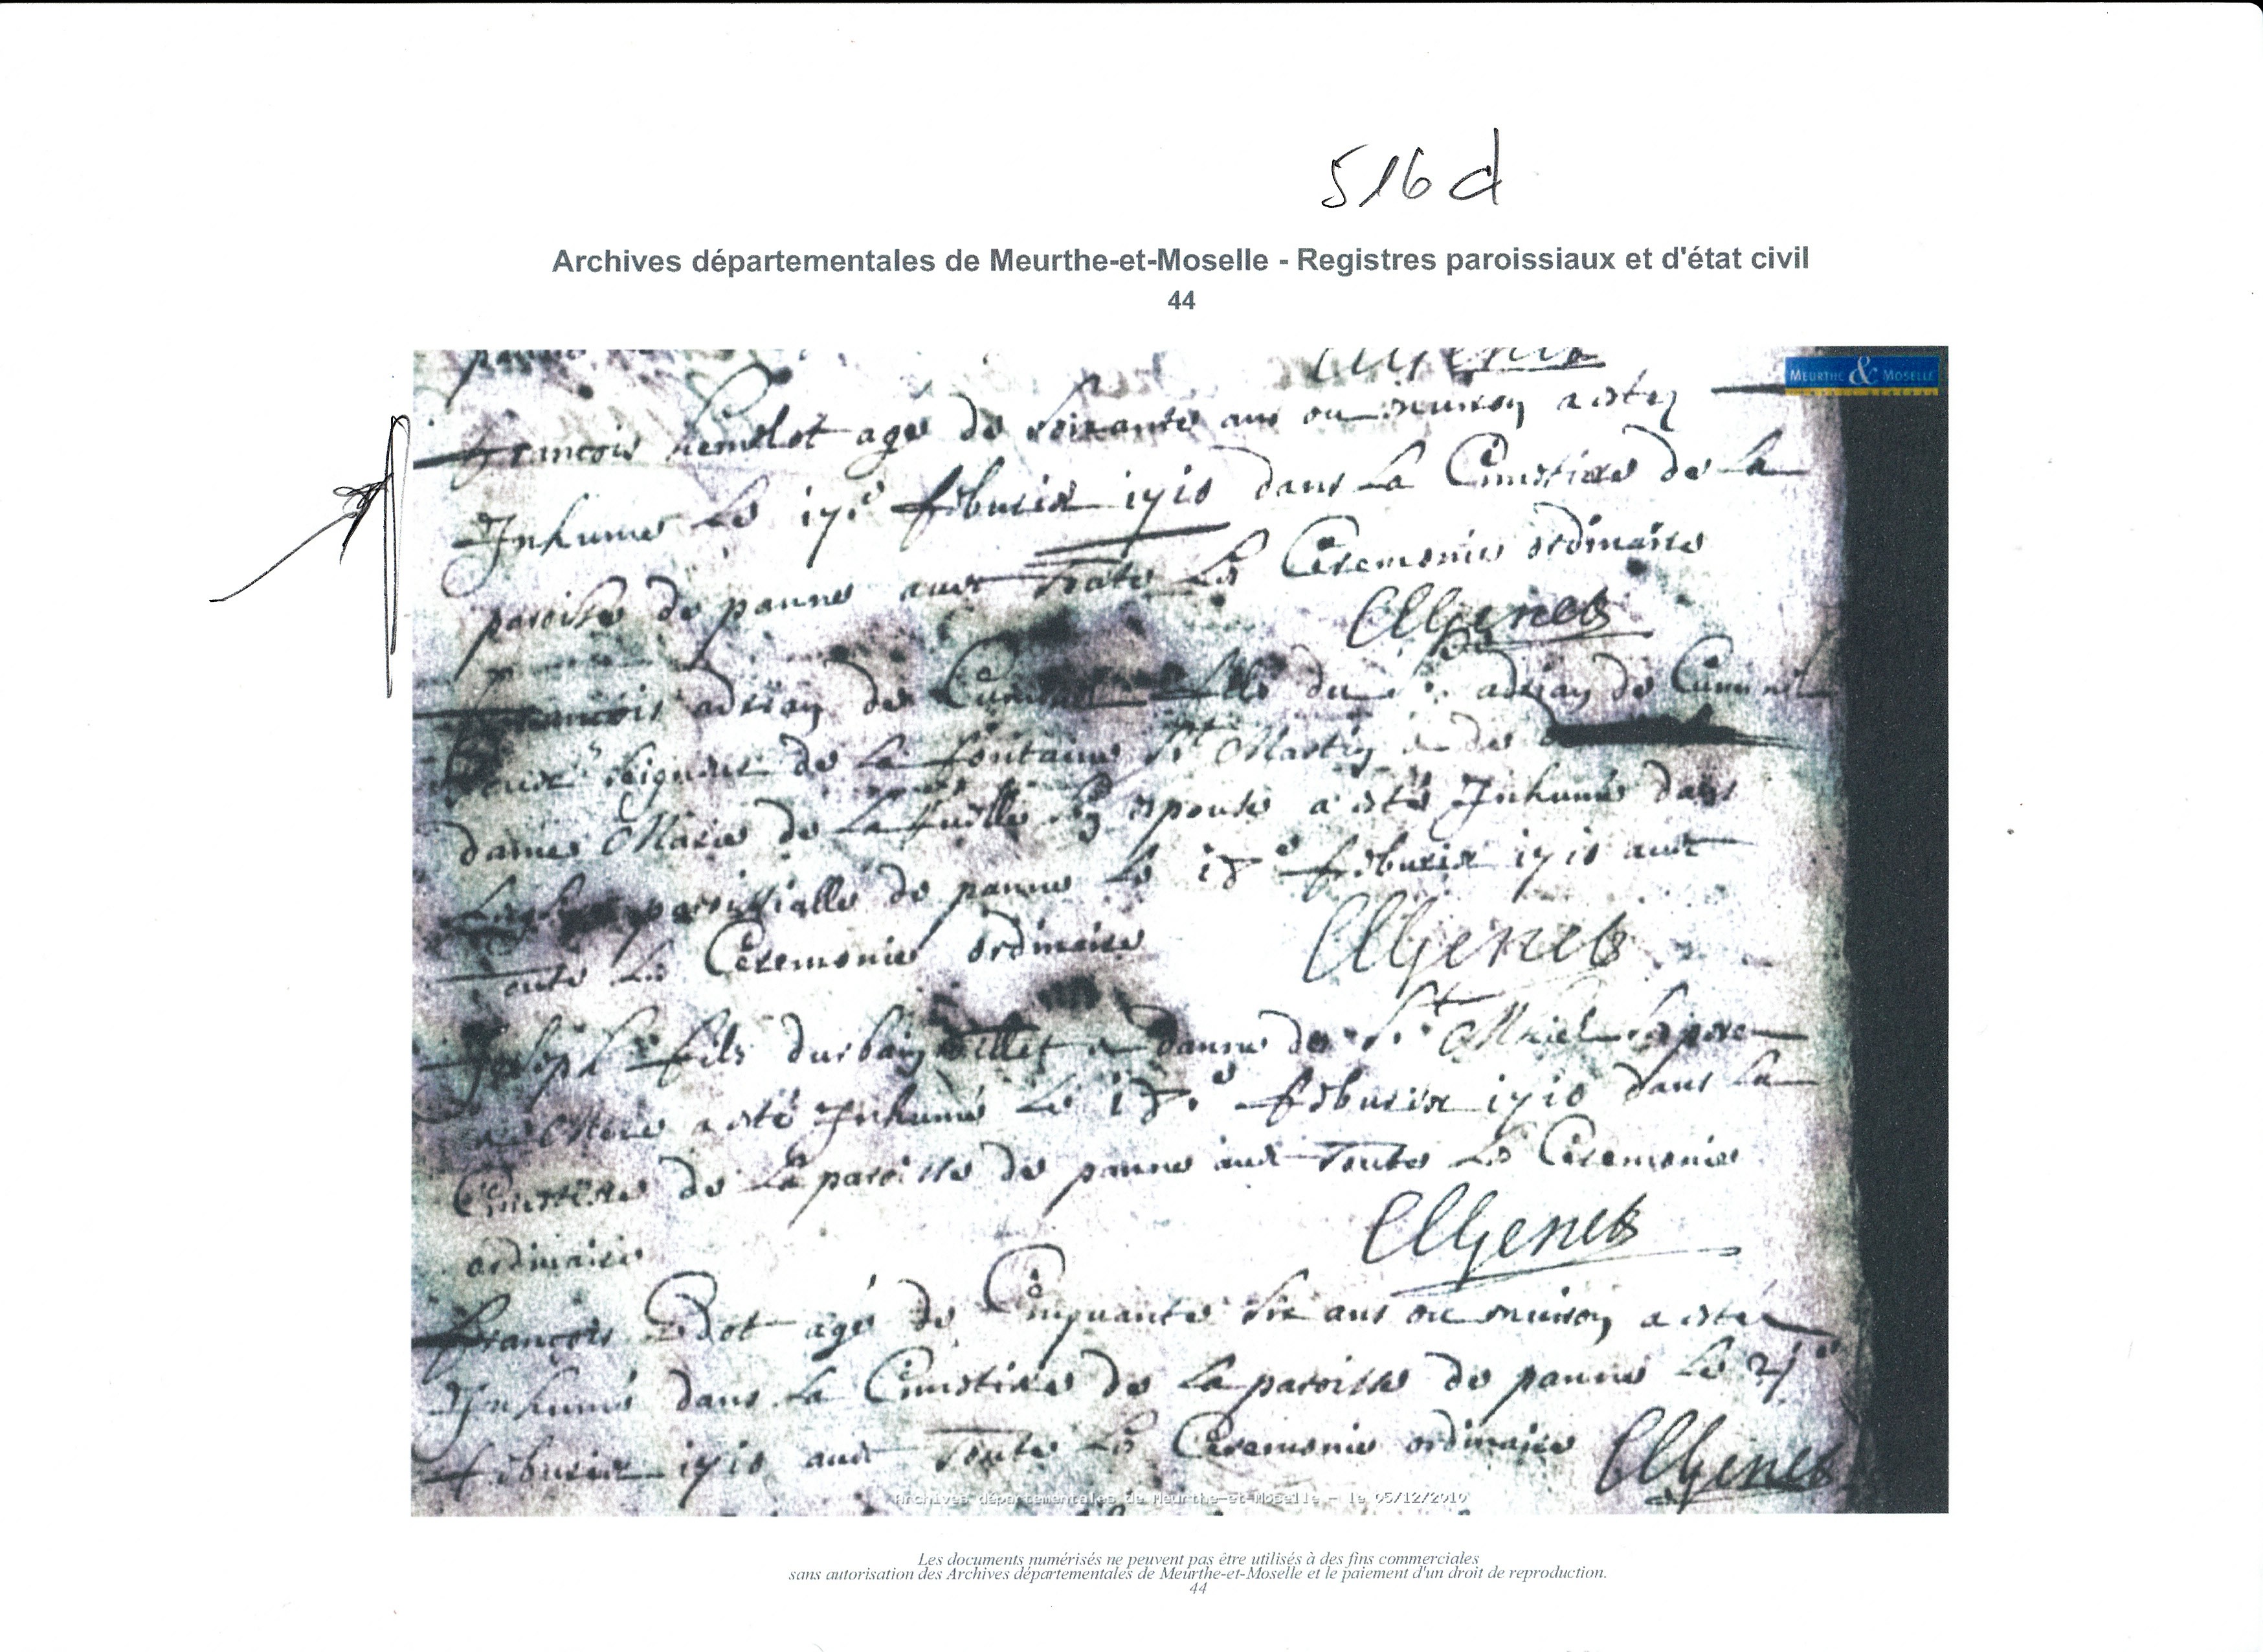 516 d
Archives départementales de Meurthe-et-Moselle - Registres paroissiaux et d'état civil
44
MEURTHE & MOSELLE
francois agé de soixante ans ou environ a esté
Inhumé le 17e febvrier 1710 dans la Cimetiere de la
paroisse de panne avec toute les Ceremonies ordinaires
CUGenet
francois adrian de fils du Sr adrian de
seigneur de la fontaine St Martin et de
dame Marie de la son espouse a esté Inhumé dans
paroissialle de panne le 18e febvrier 1710 avec
toute les Ceremonies ordinaires
CUGenet
Joseph fils durbain et danne de St Mihiel ses pere
et Mere a esté Inhumé le 18e febvrier 1710 dans la
Cimetiere de la paroisse de panne avec Toutes les Ceremonies
ordinaires
CUGenet
francois agé de Cinquante six ans ou environ a esté
Inhumé dans la Cimetiere de la paroisse de panne le
febvrier 1710 avec Toute les Ceremonies ordinaires
CUGenet
Archives départementales de Meurthe-et-Moselle - le 05/12/2010
Les documents numérisés ne peuvent pas être utilisés à des fins commerciales
sans autorisation des Archives départementales de Meurthe-et-Moselle et le paiement d'un droit de reproduction.
44